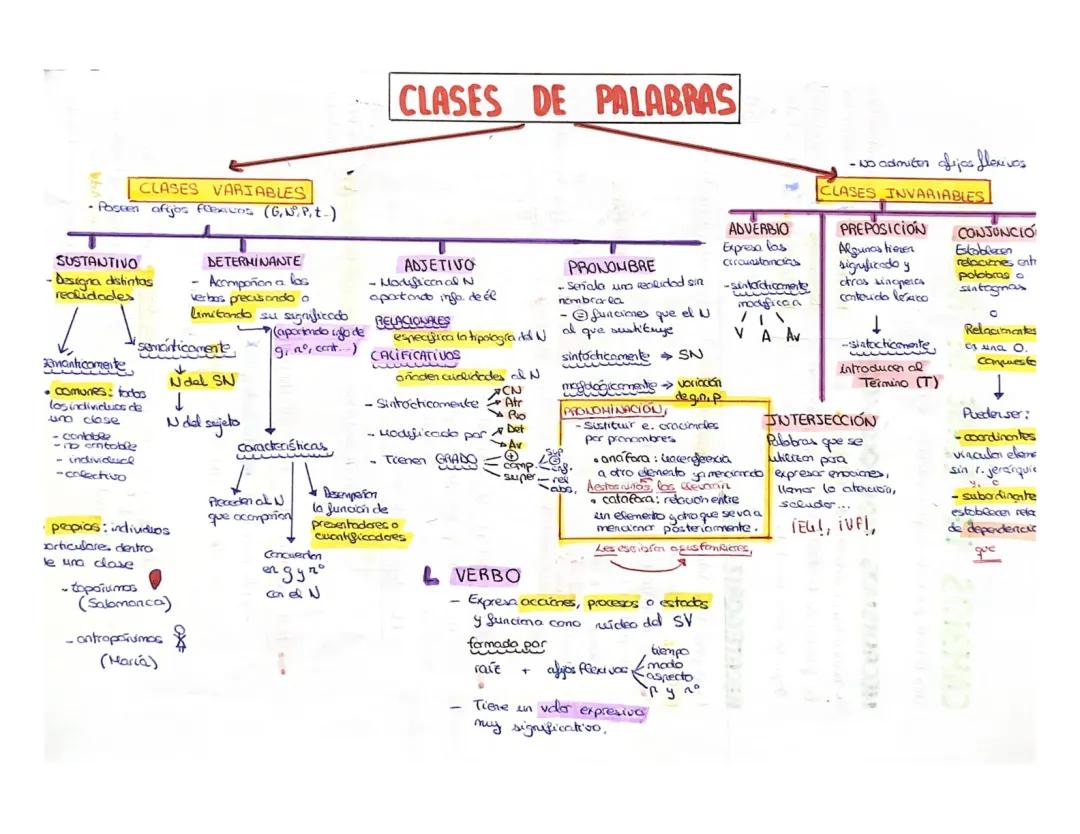 CLASES DE PALABRAS
CLASES VARIABLES
- Poseen afijos flexivos (G, Nº, P, t...)
SUSTANTIVO
- Designa distintas
realidades
semánticamente
• comunes: todos
los individuos de
una clase
- contable
- no contable
- individual
- colectivo
propios: individuos
particulares dentro
de una clase
- topónimos
(Salamanca)
- antropónimos
(María)
semánticamente
N del SN
N del sujeto
DETERMINANTE
- Acompañan a los
verbos precisando o
limitando su significado
(aportando info de
g, nº, cant...)
características
Preceden al N
que acompañan
Concuerdan
en g y nº
con el N
Desempeñan
la función de
presentadores o
cuantificadores
ADJETIVO
- Modifican al N
aportando info. de él
RELACIONALES
especifica la tipología del N
CALIFICATIVOS
añaden cualidades al N
- Sintácticamente
CN
Atr
Pvo
- Modificado por
Det
Av
- Tienen GRADO
+
comp.
super
sup
=
inf.
rel
abs.
PRONOMBRE
- Señala una realidad sin
nombrarla
- = funciones que el N
al que sustituye
sintácticamente → SN
morfológicamente → variación
de g, n, p
PRONOMINACIÓN,
- Sustituir e. oracionales
por pronombres
• anáfora: hace referencia
a otro elemento ya mencionado
A estos niños, los llevarán
• catáfora: relación entre
un elemento y otro que se va a
mencionar posteriormente.
Les escribirán a sus familiares,
VERBO
- Expresa acciones, procesos o estados
y funciona como núcleo del SV
formado por
raíz + afijos flexivos
tiempo
modo
aspecto
p y nº
- Tiene un valor expresivo
muy significativo.
- No admiten afijos flexivos
CLASES INVARIABLES
ADVERBIO
Expresa las
circunstancias
- sintácticamente
modifica a
V A Av
PREPOSICIÓN
Algunas tienen
significado y
otras sin apenas
contenido léxico
- sintácticamente
introducen al
Término (T)
INTERJECCIÓN
Palabras que se
utilizan para
expresar emociones,
llamar la atención,
saludar...
¡EH!, ¡UF!,
CONJUNCIÓ
Establecen
relaciones ent
palabras o
sintagmas
o
Relacionantes
es una O.
compuesta
Pueden ser:
- coordinantes
vinculan eleme
sin r. jerárquic
y, o
- subordinante
establecen rela
de dependencia
que